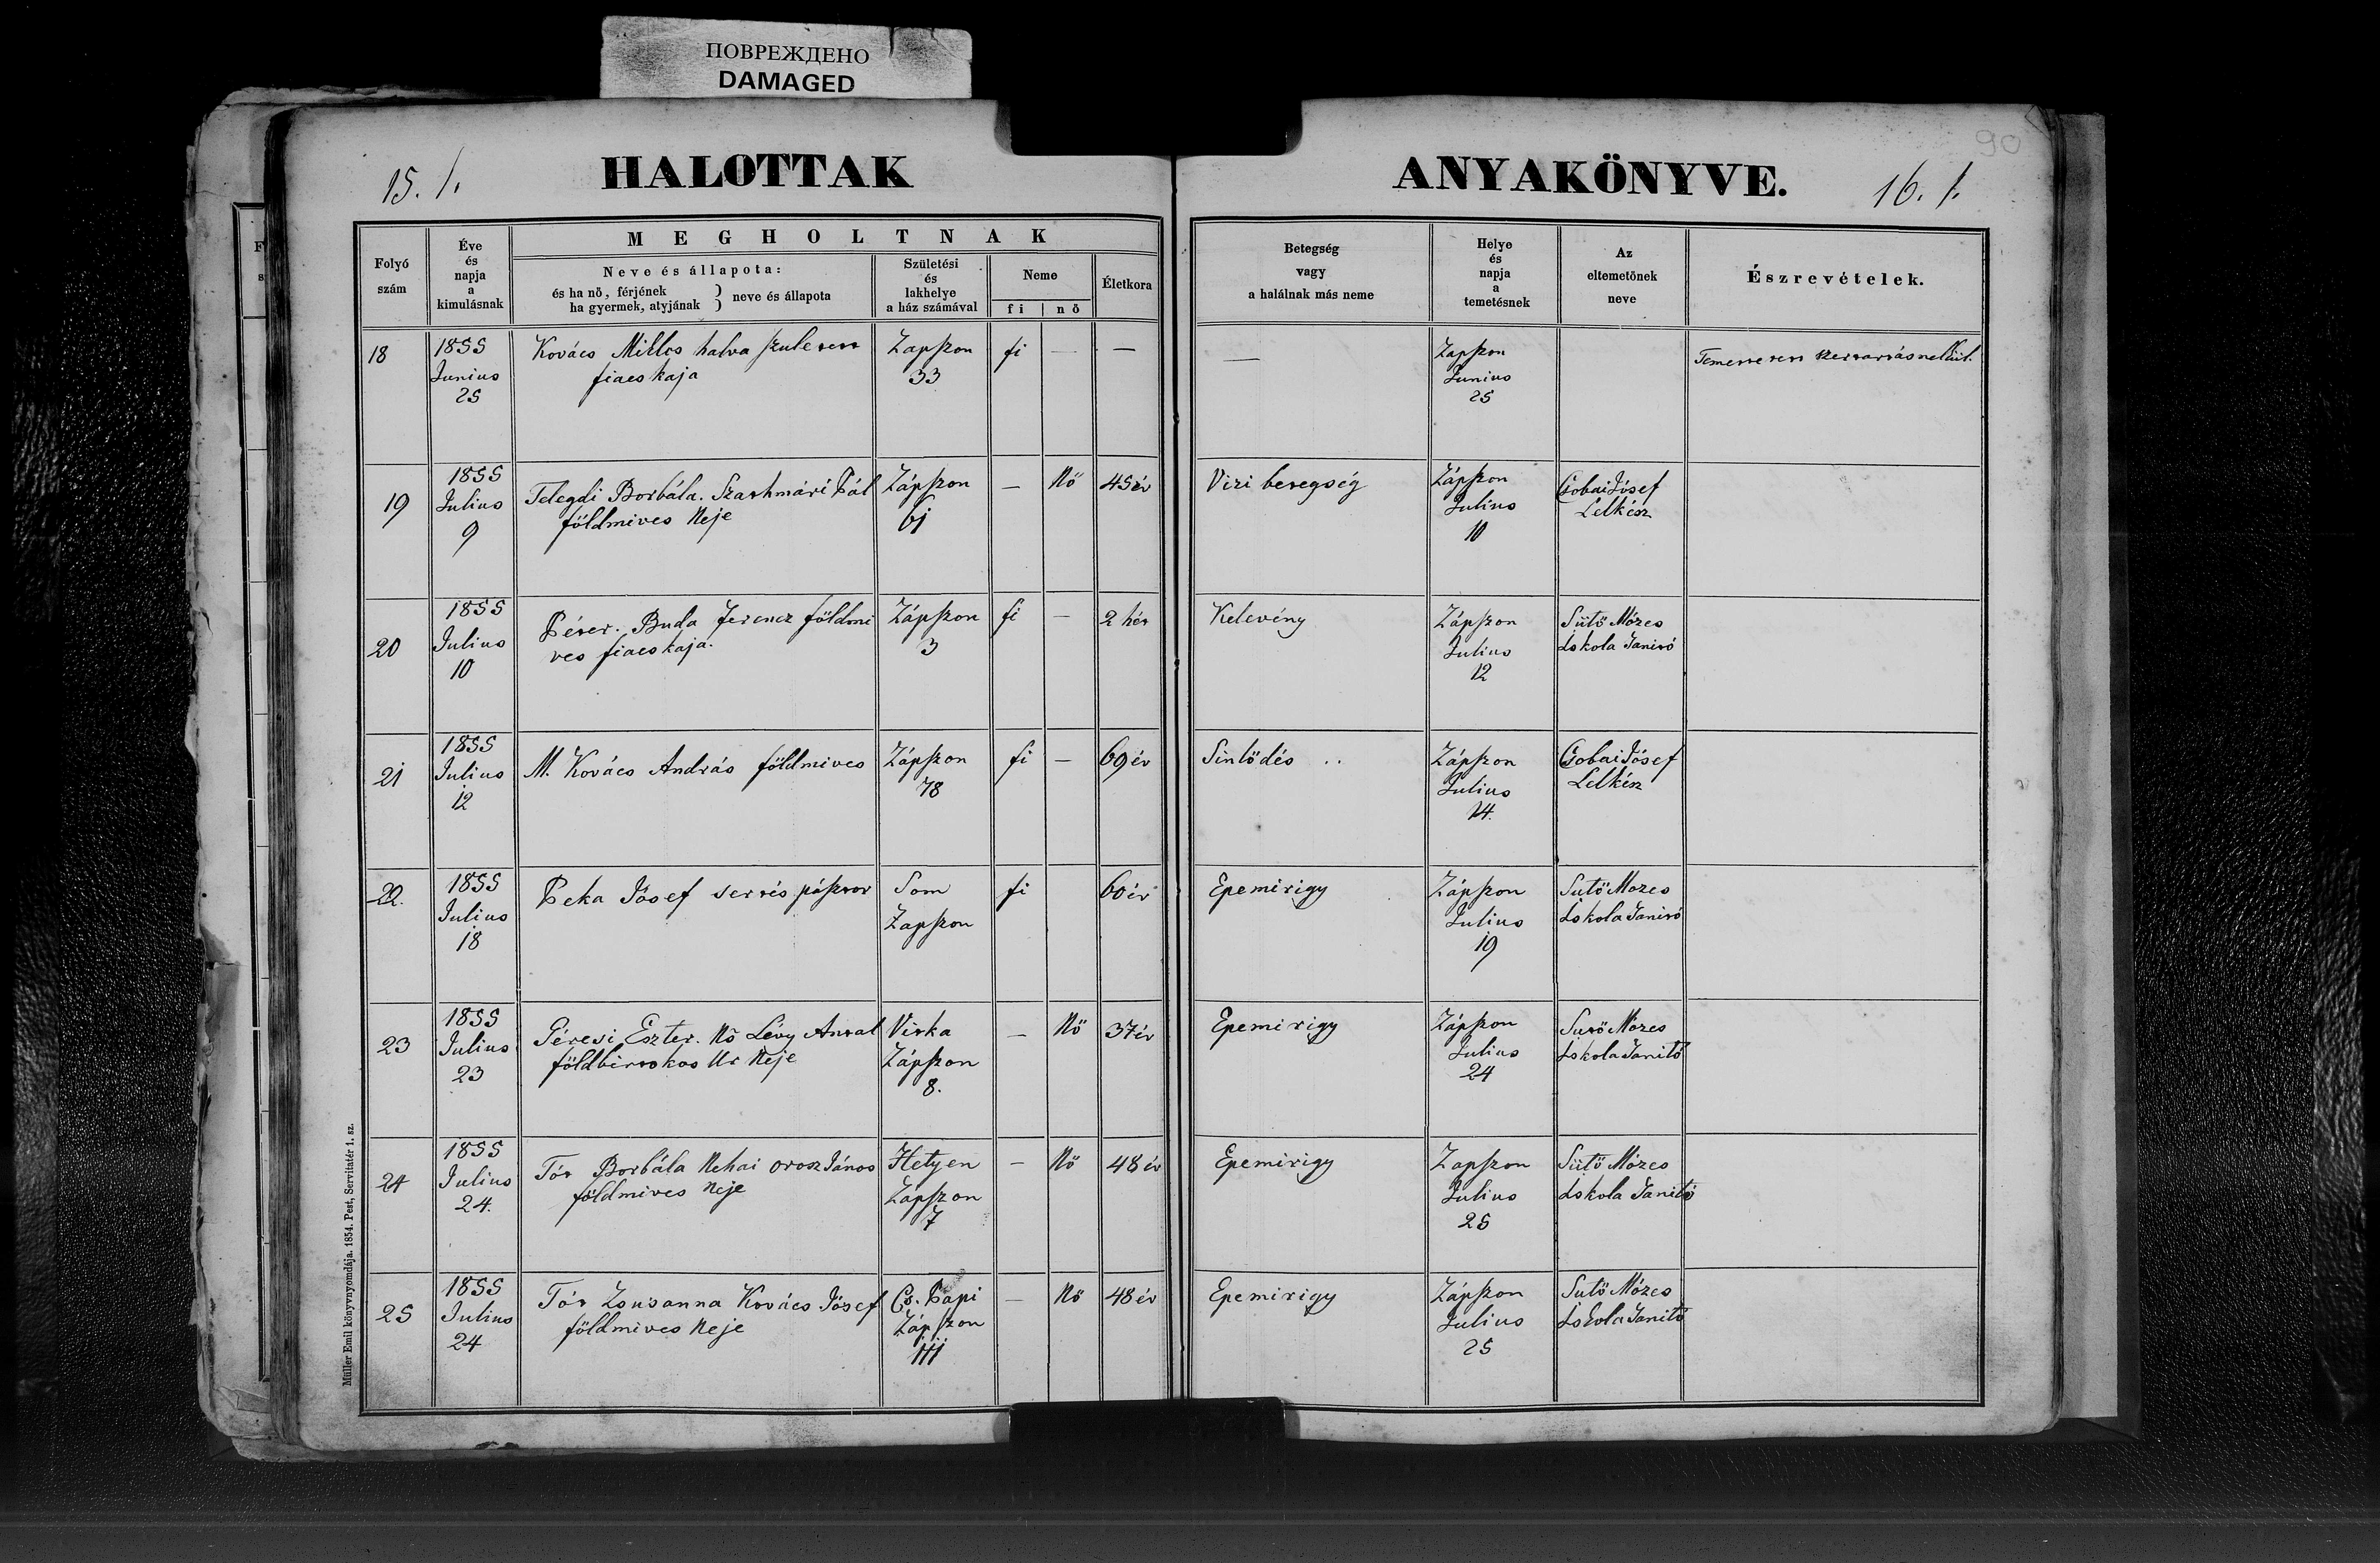 ПОВРЕЖДЕНО
DAMAGED
90
15. l.
HALOTTAK
ANYAKÖNYVE.
16. l.
Folyó
szám
Éve
és
napja
a
kimulásnak
MEGHOLTNAK
Neve és állapota:
és ha nö, férjének
ha gyermek, atyjának } neve és állapota
Születési
és
lakhelye
a ház számával
Neme
fi | nö
Életkora
Betegség
vagy
a halálnak más neme
Helye
és
napja
a
temetésnek
Az
eltemetönek
neve
Észrevételek.
18
1855
Junius
25
Kovács Miklos halva szuletett
fiacskaja
Zapszon
33
fi
—
—
—
Zapszon
Junius
25
Temettetett szertartás nelkül.
19
1855
Julius
9
Telegdi Borbála. Szathmári Pál
földmives Neje
Zápszon
61
—
Nö
45 év
Vizi betegség
Zápszon
Julius
10
Csobai Jósef
Lelkész
20
1855
Julius
10
Péter. Buda Ferencz földmi
ves fiacskaja.
Zápszon
3
fi
—
2 hét
Kelevény
Zápszon
Julius
12
Sütö Mózes
Iskola Tanitó
21
1855
Julius
12
M. Kovács András földmives
Zápszon
78
fi
—
69 év
Sinlödés
Zápszon
Julius
14.
Csobai Jósef
Lelkész
22.
1855
Julius
18
Peka Jósef sertés pásztor
Som
Zapszon
fi
60 év
Epemirigy
Zápszon
Julius
19
Sutö Mozes
Iskola Tanitó
23
1855
Julius
23
Péresi Eszter. Nö Lévy Antal
földbirtokos Ur Neje
Viska
Zápszon
8.
—
Nö
37 év
Epemirigy
Zápszon
Julius
24
Sutö Mózes
Iskola Tanitó
24
1855
Julius
24.
Tót Borbála Nehai orosz János
földmives Neje
Hetyen
Zápszon
7
—
Nö
48 év
Epemirigy
Zapszon
Julius
25
Sütö Mózes
Iskola Tanitó
25
1855
Julius
24
Tót Zsusanna Kovács Jósef
földmives Neje
Cs. Papi
Zápszon
111
—
Nö
48 év
Epemirigy
Zápszon
Julius
25
Sutö Mózes
Iskola Tanitó
Müller Emil könyvnyomdája. 1854. Pest, Servitatér 1. sz.